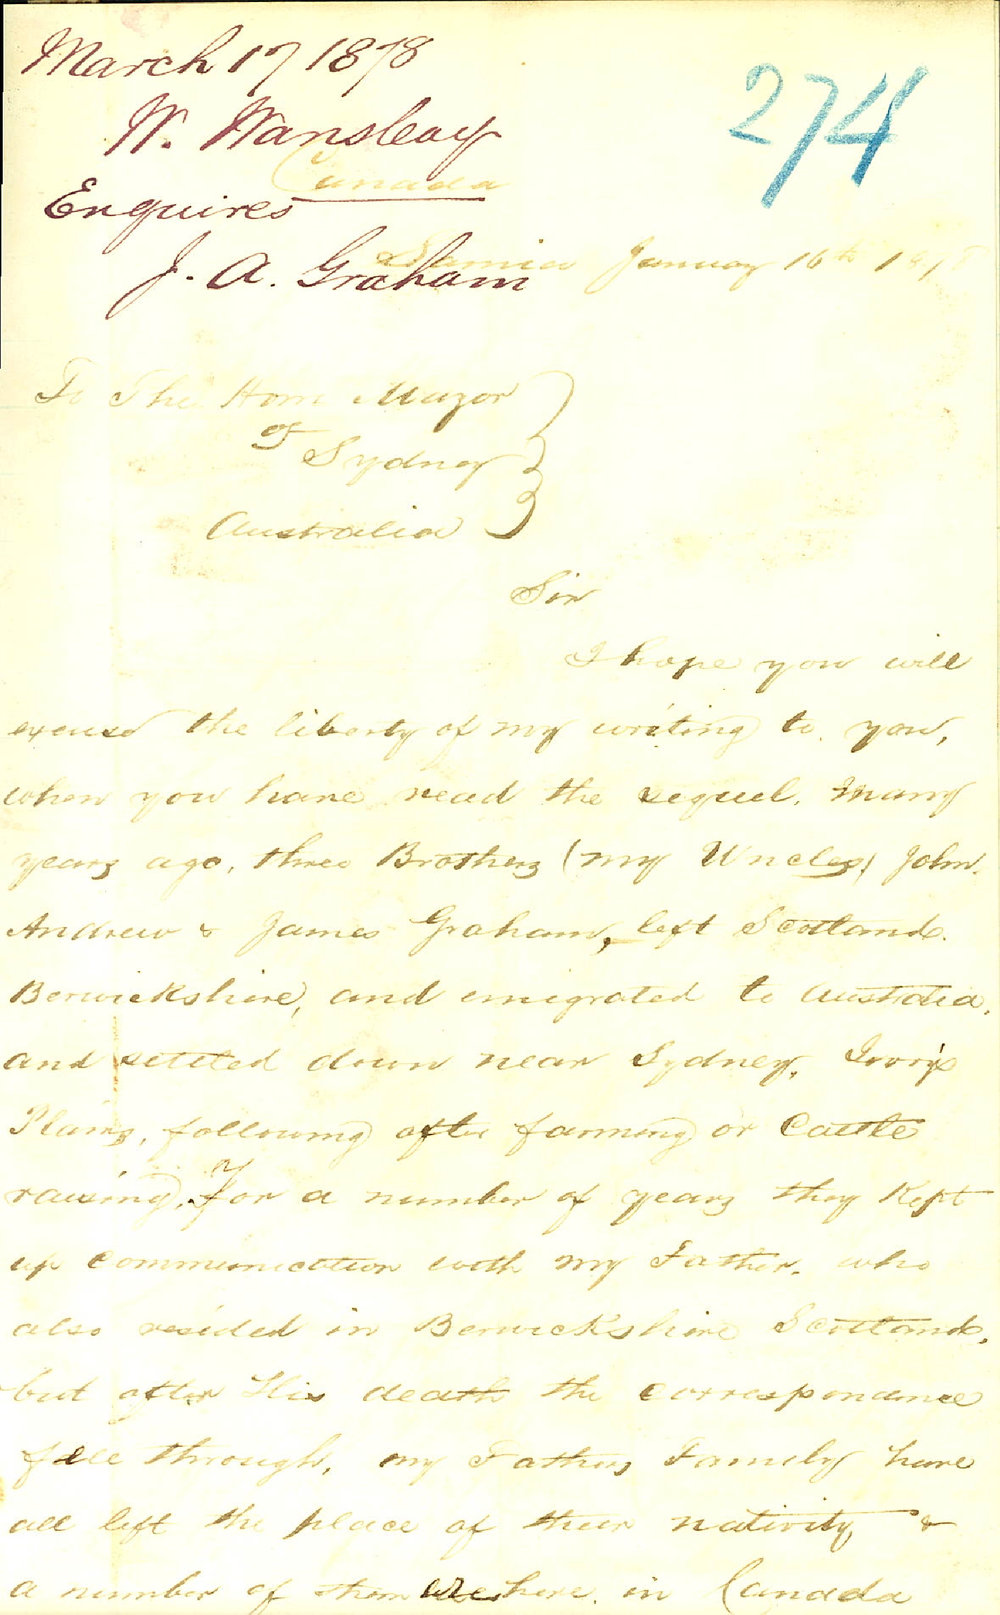 March 17 1878
W. Wansleay
Canada
Enquires
J. A. Graham
Sarnia January 16th 187
274
To The Hon Mayor
of
Sydney
Australia
Sir
I hope you will
excuse the liberty of my writing to you,
when you have read the sequel. Many
years ago, three Brothers (my Uncles) John.
Andrew & James Graham, left Scotland.
Berwickshire, and emigrated to Australia,
and settled down near Sydney,
Plains, following after farming or Cattle
raising. For a number of years they kept
up communication with my Father. who
also resided in Berwickshire Scotland,
but after His death the correspondance
fell through, my Fathers Family have
all left the place of their nativity &
a number of them are here in Canada